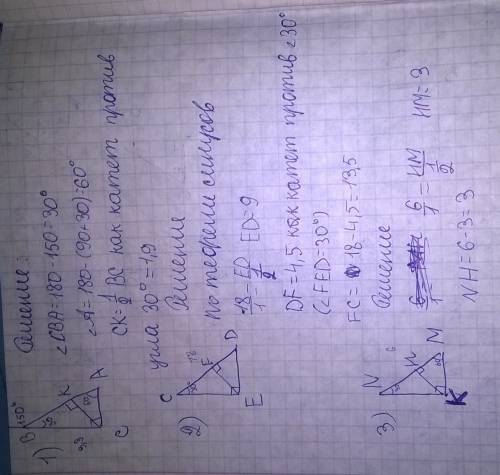 1)
B
150°
K
30
60
A
3,8
C
Решение:
∠CBA=180-150=30°
∠A=180-(90+30)=60°
CK=1/2 BC как катет против
угла 30°=1,9
2)
C
18
30
F
D
E
Решение
по теореме синусов
18/1=ED/1/2 ED=9
DF=4,5 как катет против ∠30°
(∠FED=30°)
FC=18-4,5=13,5
3)
N
6
30
H
60
M
K
Решение
6/1=HM/1/2 HM=3
NH=6-3=3